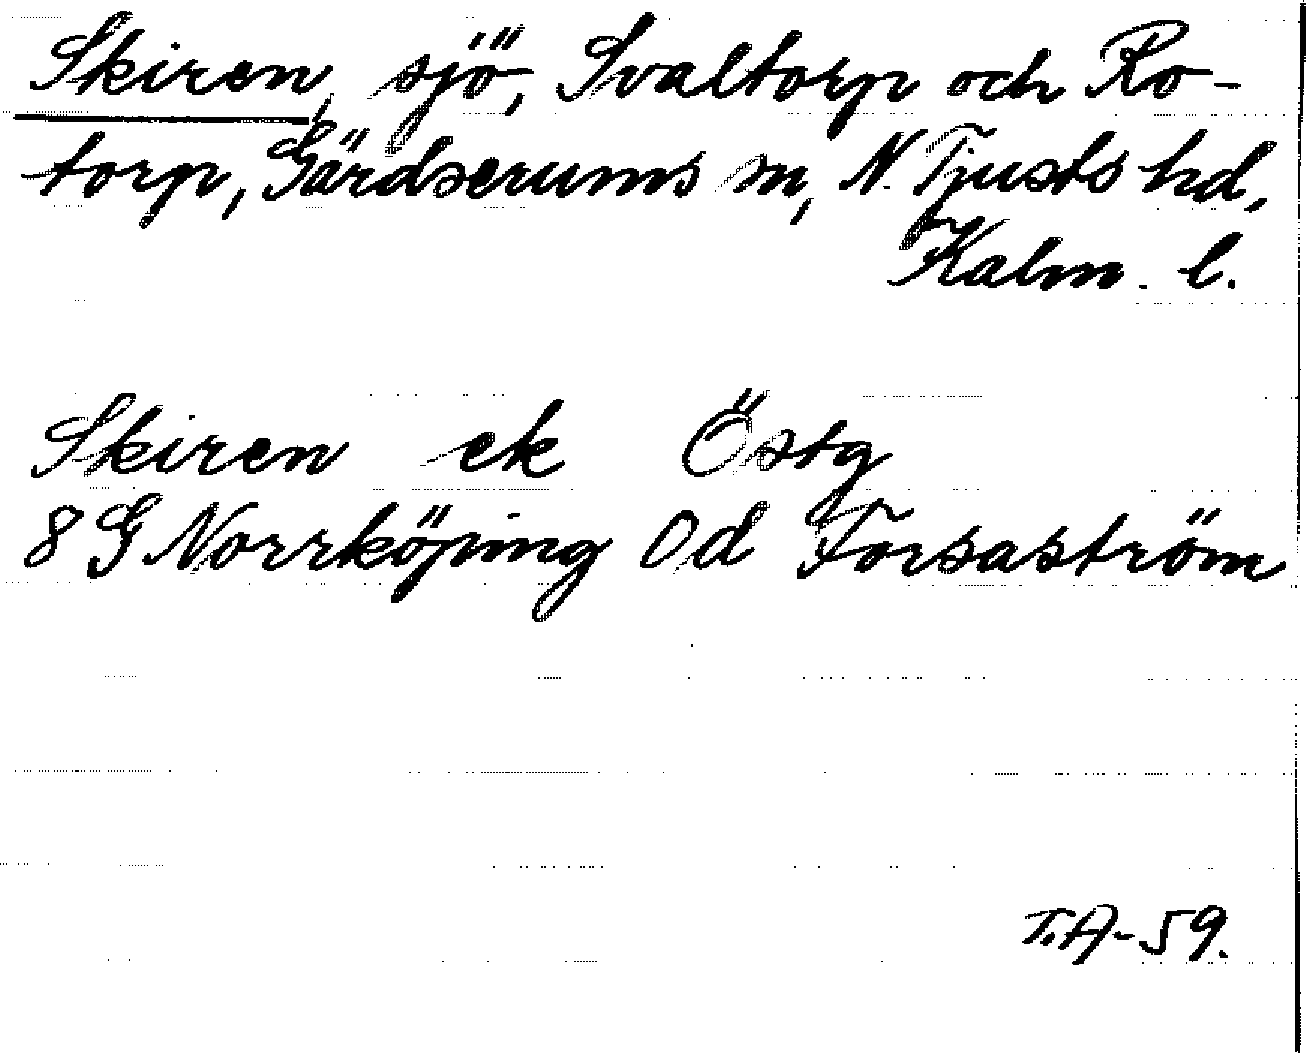 Skiren, sjö, Svaltorp och Ro-
torp, Gärdserums sn, N. Tjusts hd,
Kalm. l.
Skiren ek Östg
8 G Norrköping 0d Forsaström
T.A-59.